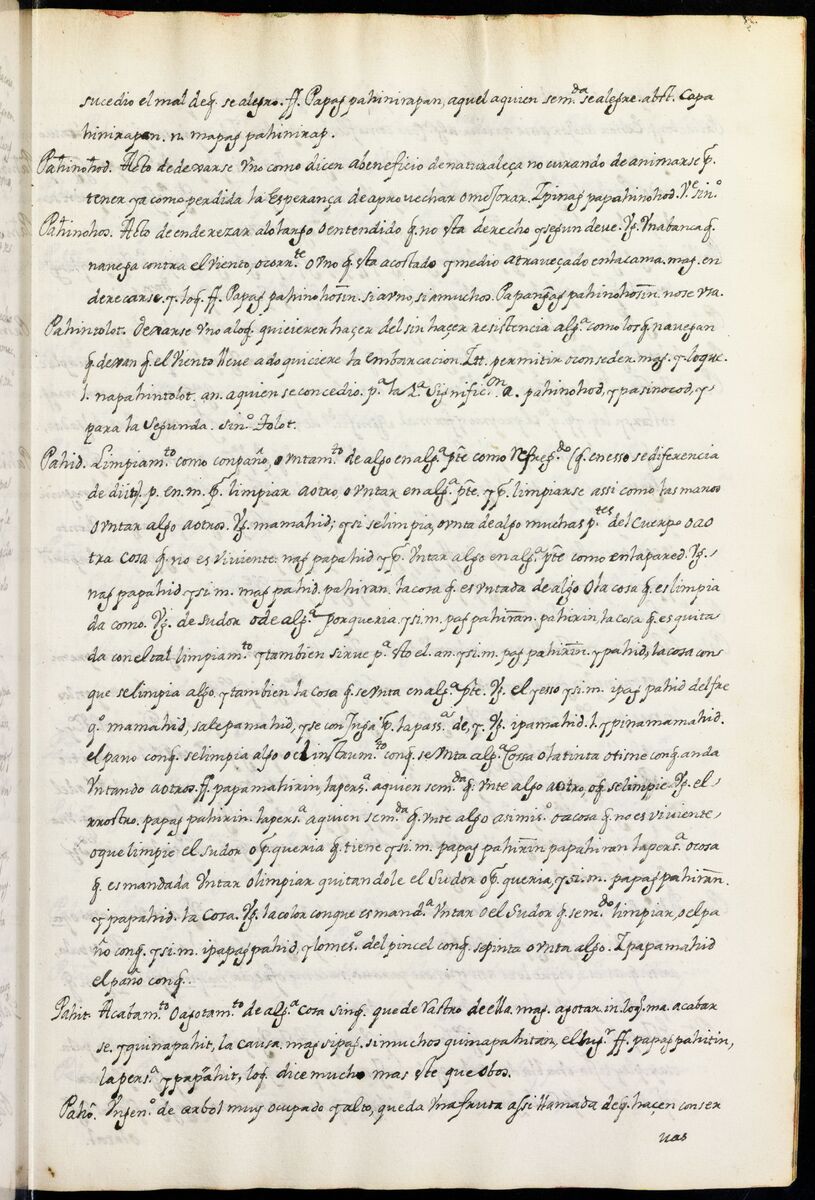 sucedio el mal deq̃. se alegro. ff. Papag pahinirapan, aquel aquien sem.da se alegre. abst. Capa
hinirapan. n. mapag pahinirap.
Pahinohod. Acto de dexarse vno como dicen a beneficio de naturaleça no curando de animarse p̃.
tener ya como perdida la Esperança de aprovechar o mejorar. Ipinag papahinohod. V.e sin.o
Pahinohos. Acto de enderezar alo largo o entendido q̃. no sta derecho y segun deve. Vg. Vna banca q̃.
navega contra el viento, o corr.te o vno q̃. sta acostado y medio atraveçado en la cama. mag. en
derecarse. y. loq̃. ff. Papag pahinohosin. si a vno, si a muchos. Papangag pahinohosin. no se vsa.
Pahintolot. Dexarse vno a loq̃. quicieren haçer del sin haçer resistencia alg.a como los q̃. navegan
q̃. dexan q̃. el viento lleve ado quiciere la embarcacion. Itt. permitir o conseder. mag. y. loque.
l. napahintolot. an. a quien se concedio. p.a la 1.a Signific.on a. pahinohod, y pasinorod, y
para la Segunda. sin.o Tolot.
Pahid. Limpiam.to como con paño, o vntam.to de algo en alg.a pte como refreg.do (q̃. en esso se diferencia
de diit). p. en. m. p̃. limpiar a otro, o vntar en alg.a pte. y p̃. limpiarse assi como las manos
o vntar algo a otros. Vg. mamahid; y si se limpia, o vnta de algo muchas p.tes del cuerpo o a o
tra cosa q̃. no es viviente. nag papahid y p̃. vntar algo en alg.a pte como en la pared. Vg.
nag papahid y si. m. mag pahid. pahiran. la cosa q̃. es vntada de algo o la cosa q̃. es limpia
da como. Vg. de sudor o de alg.a porqueria, y si. m. pag pahiran. pahirin, la cosa q̃. es quita
da con el tal limpiam.to y tambien sirve p.a sto el. an. y si. m. pag pahirin. y pahid, la cosa con
que se limpia algo, y tambien la cosa q̃. se vnta en alg.a pte. Vg. el yesso y si. m. ipag pahid del fre
q.o mamahid, sale pamahid, y se conjuga p̃. la pass.a de, y. Vg. ipamahid. l. ypinamamahid.
el pano conq̃. se limpia algo o el instrum.to conq̃. se vnta alg.a Cossa o la tinta o tisne conq̃. anda
vntando a otros. ff. papamahirin, la pers.a aquien sem.da q̃. vnte algo a otro, o q̃. se limpie Vg. el
rrostro. papag pahirin. la pers.a a quien sem.da q̃. vnte algo asi mis.o o a cosa q̃. no es viviente
o que limpie el sudor o p̃.queria q̃. tiene y si. m. papag pahirin papahiran la pers.a o cosa
q̃. es mandada vntar o limpiar quitandole el Sudor o p̃.queria, y si. m. papag pahiran.
y ipapahid. la cosa. Vg. la color con que es mand.a vntar o el Sudor q̃. sem.do limpiar, o el pa
ño conq̃. y si. m. ipapag pahid, y lo mes.o del pincel conq̃. se pinta o vnta algo. Ipapamahid
el paño conq̃.
Pahit. Acabam.to o agotam.to de alg.a cosa sinq̃. quede rastro de ella. mag. agotar. in. loq̃. ma. acabar
se. y quinapahit, la causa, mag sipag. si muchos quinapahitan, el lug.r ff. papag pahitin,
la pers.a y papahit, loq̃. dice mucho mas ste que obos.
Paho. Vn gen.o de arbol muy ocupado y alto, que da vna fruta assi llamada deq̃. haçen conser
vas